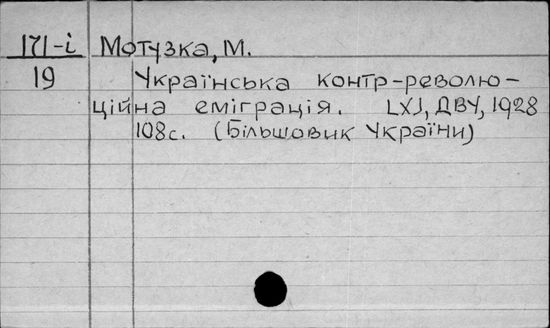 171-і Мотузка, М.
19 Українська контр-револю-
ційна еміграція. [Х], ДВУ, 1928
108с. (Більшовик України)